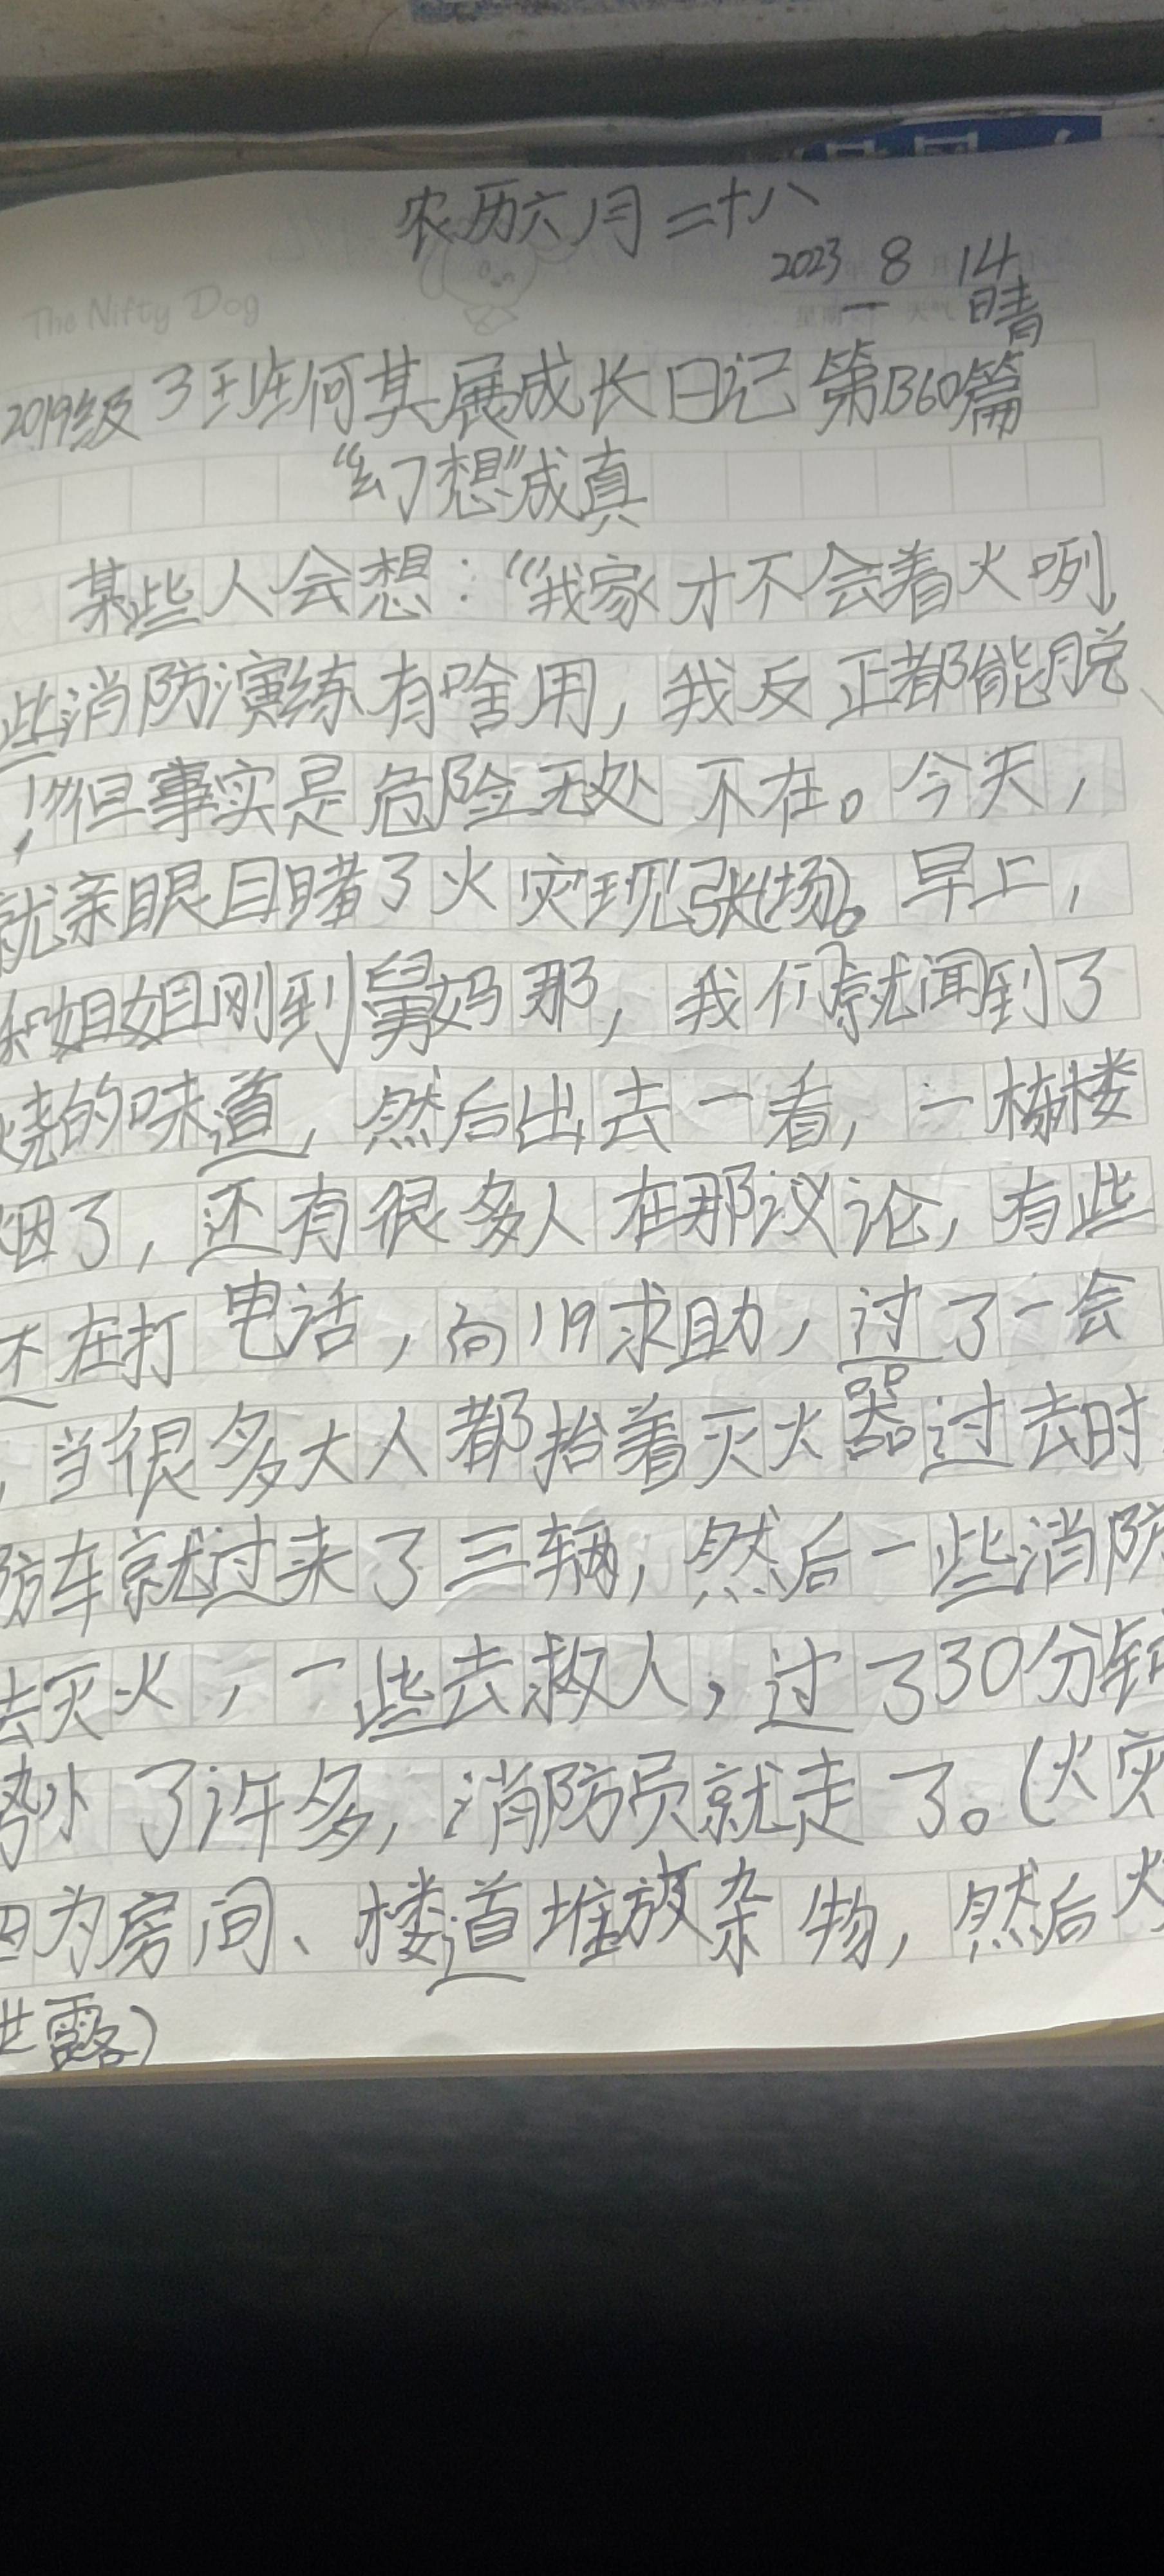 农历六月二十八
2023 8 14
The Nifty Dog
星期一 天气 晴
2019级3班何其展成长日记第1360篇
“幻想”成真
某些人会想：“我家才不会着火咧,
些消防演练有啥用，我反正都能脱
！”但事实是危险无处不在。今天，
就亲眼目睹了火灾现场。早上，
和姐姐刚到舅妈那，我们就闻到了
烧的味道，然后出去一看，一栋楼
烟了，还有很多人在那议论，有些
还在打电话，向119求助，过了一会
，当很多大人都抬着灭火器过去时
防车就过来了三辆，然后一些消防
去灭火，一些去救人，过了30分钟
势小了许多，消防员就走了。(火灾
因为房间、楼道堆放杂物，然后火
泄露)